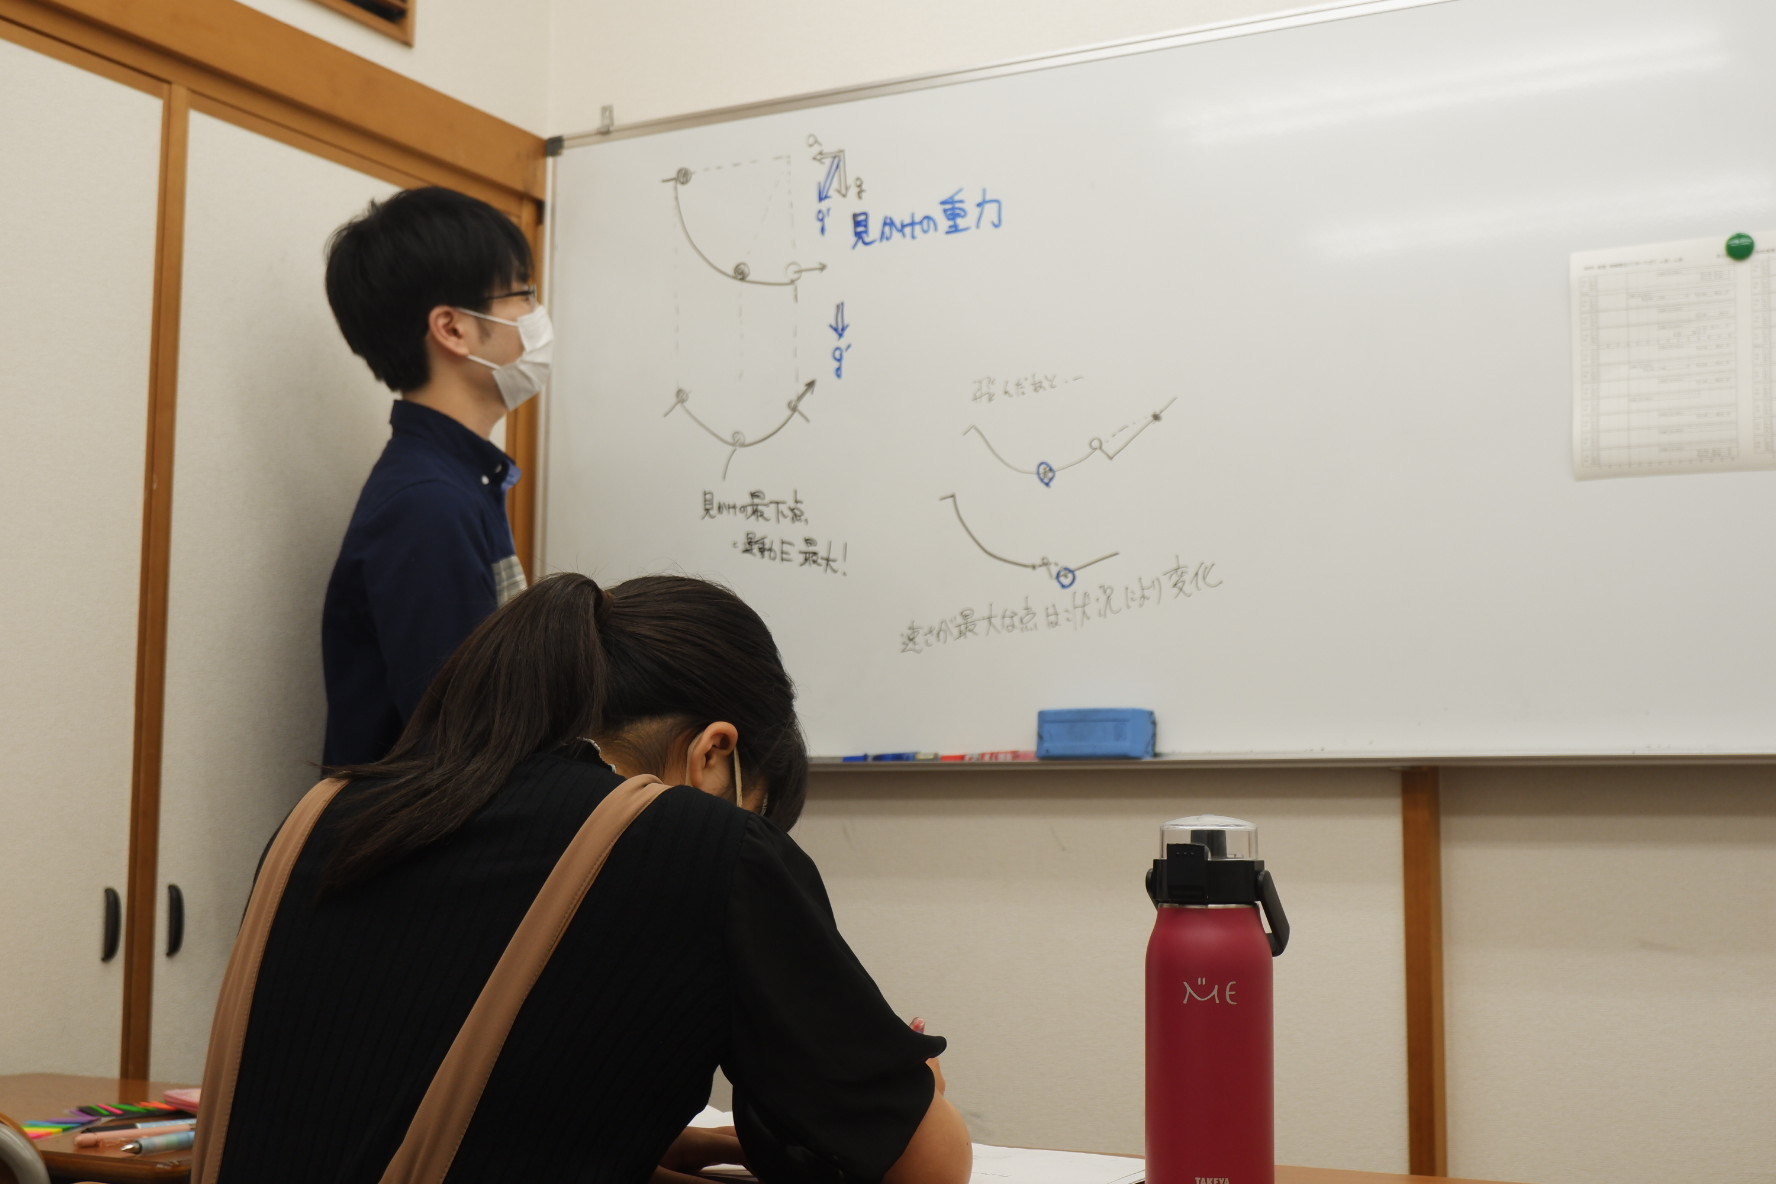 a
g
g'
見かけの重力
g'
飛んだあと…
見かけの最下点
運動E最大!
速さが最大な点は状況により変化
ME
TAKEYA